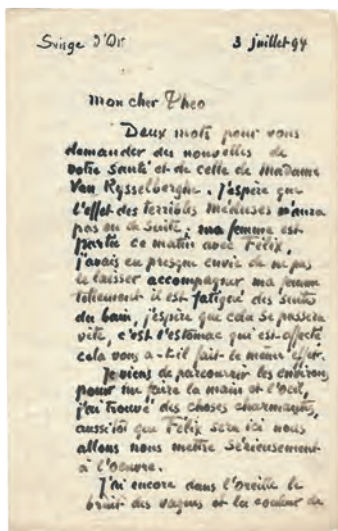 Singe d'Or 3 juillet 94
mon cher Theo
Deux mots pour vous
demander des nouvelles de
votre santé et de celle de Madame
Van Rysselberghe. j'espère que
l'effet des terribles méduses n'aura
pas eu de suite, ma femme est
partie ce matin avec Félix,
j'avais eu presque envie de ne pas
le laisser accompagner ma femme
tellement il est fatigué des suites
du bain, j'espère que cela se passera
vite, c'est l'estomac qui est affecté
cela vous a-t-il fait le même effet.
Je viens de parcourir les environs
pour me faire la main et l'oeil,
j'ai trouvé des choses charmantes,
aussitôt que Félix sera ici nous
allons nous mettre sérieusement
à l'oeuvre.
J'ai encore dans l'oreille le
bruit des vagues et la couleur de